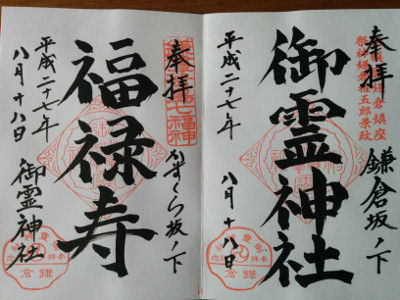 奉拝 鎌倉坂ノ下
御霊神社
平成二十七年
八月十八日
奉拝 かまくら坂ノ下
七福神
福禄寿
平成二十七年
八月十八日
御霊神社
鎌倉
鎌倉